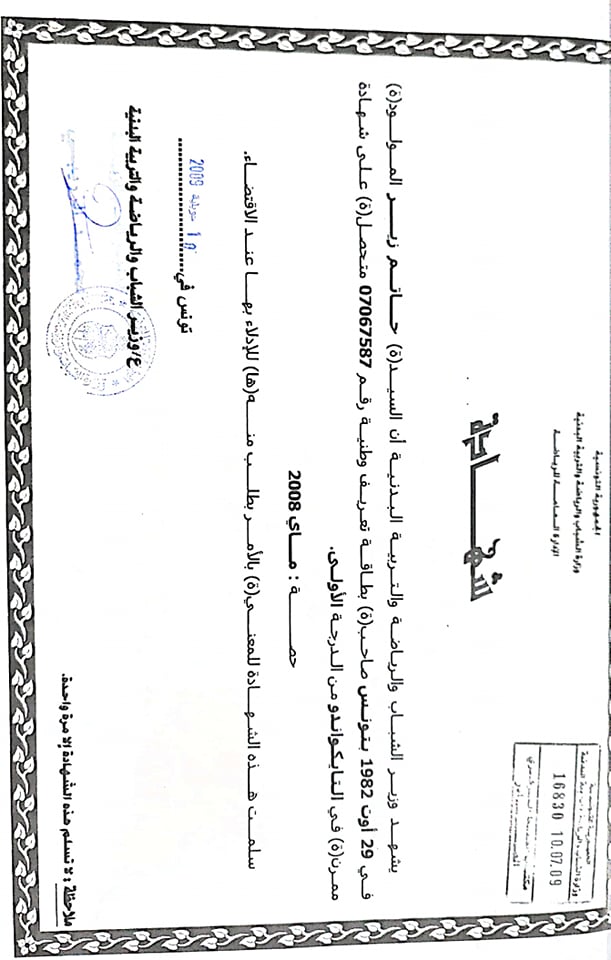 الجمهورية التونسية
وزارة الشباب والرياضة والتربية البدنية
الإدارة العامة للرياضة
16830 10.07.09
شهادة
يشهد وزير الشباب والرياضة والتربية البدنية أن السيد(ة) حاتم زير المولود(ة)
في 29 أوت 1982 بتونس صاحب(ة) بطاقة تعريف وطنية رقم 07067587 متحصل(ة) على شهادة
ممرن(ة) في التايكواندو من الدرجة الأولى.
حصة : ماي 2008
سلمت هذه الشهادة للمعني(ة) بالأمر بطلب منه(ها) للإدلاء بها عند الاقتضاء.
تونس في 10 جويلية 2009
ع/وزير الشباب والرياضة والتربية البدنية
ملاحظة : لا تسلم هذه الشهادة إلا مرة واحدة.